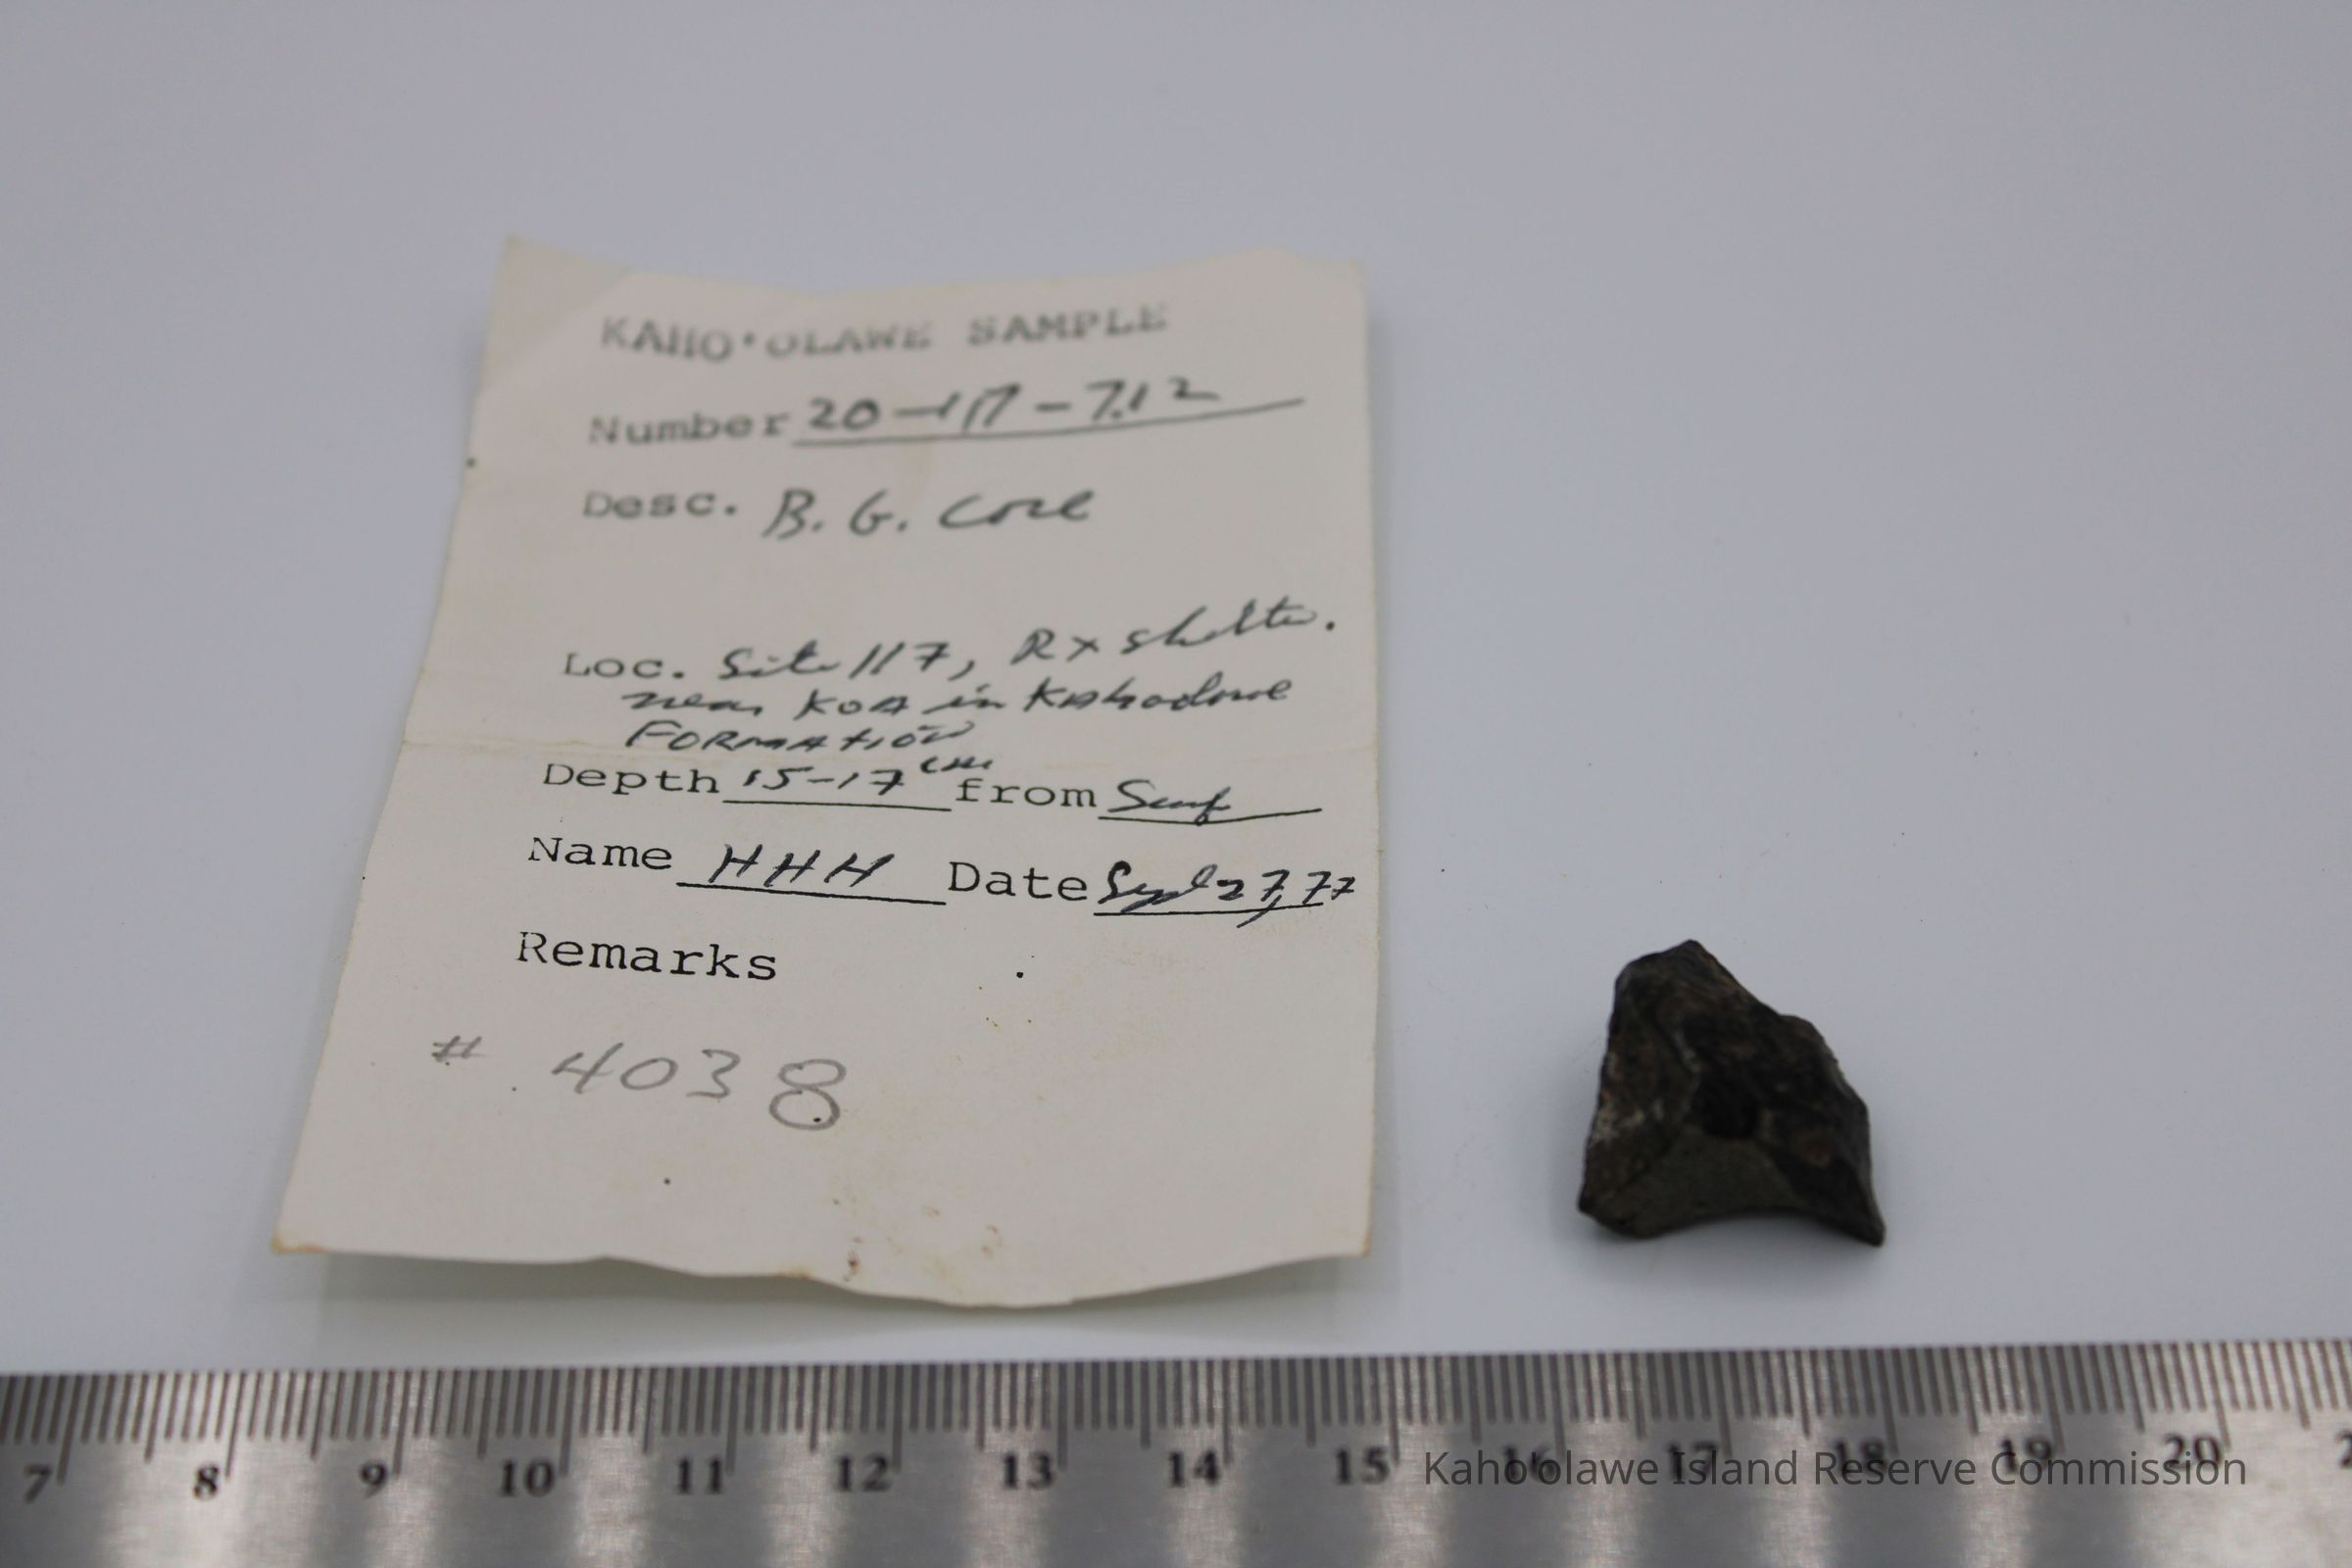 KAHO'OLAWE SAMPLE
Number 20-117-7.12
Desc. B. G. Core
Loc. Site 117, Rx shelter.
near KOA in
FORMATION
Depth 15-17 cm from Surf
Name HHH Date Sept 27, 77
Remarks
# 4038
7 8 9 10 11 12 13 14 15 16 17 18 19 20
Kahoʻolawe Island Reserve Commission